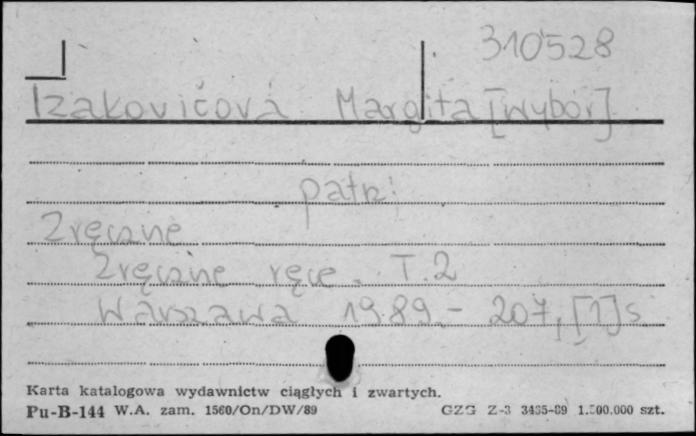 310528
Izakovičová Margita [wybór]
patrz:
Zręczne
Zręczne ręce. T.2
Warszawa 1989.- 207, [1] s
Karta katalogowa wydawnictw ciągłych i zwartych.
Pu-B-144 W.A. zam. 1560/On/DW/89 GZG Z-3 3435-89 1.500.000 szt.